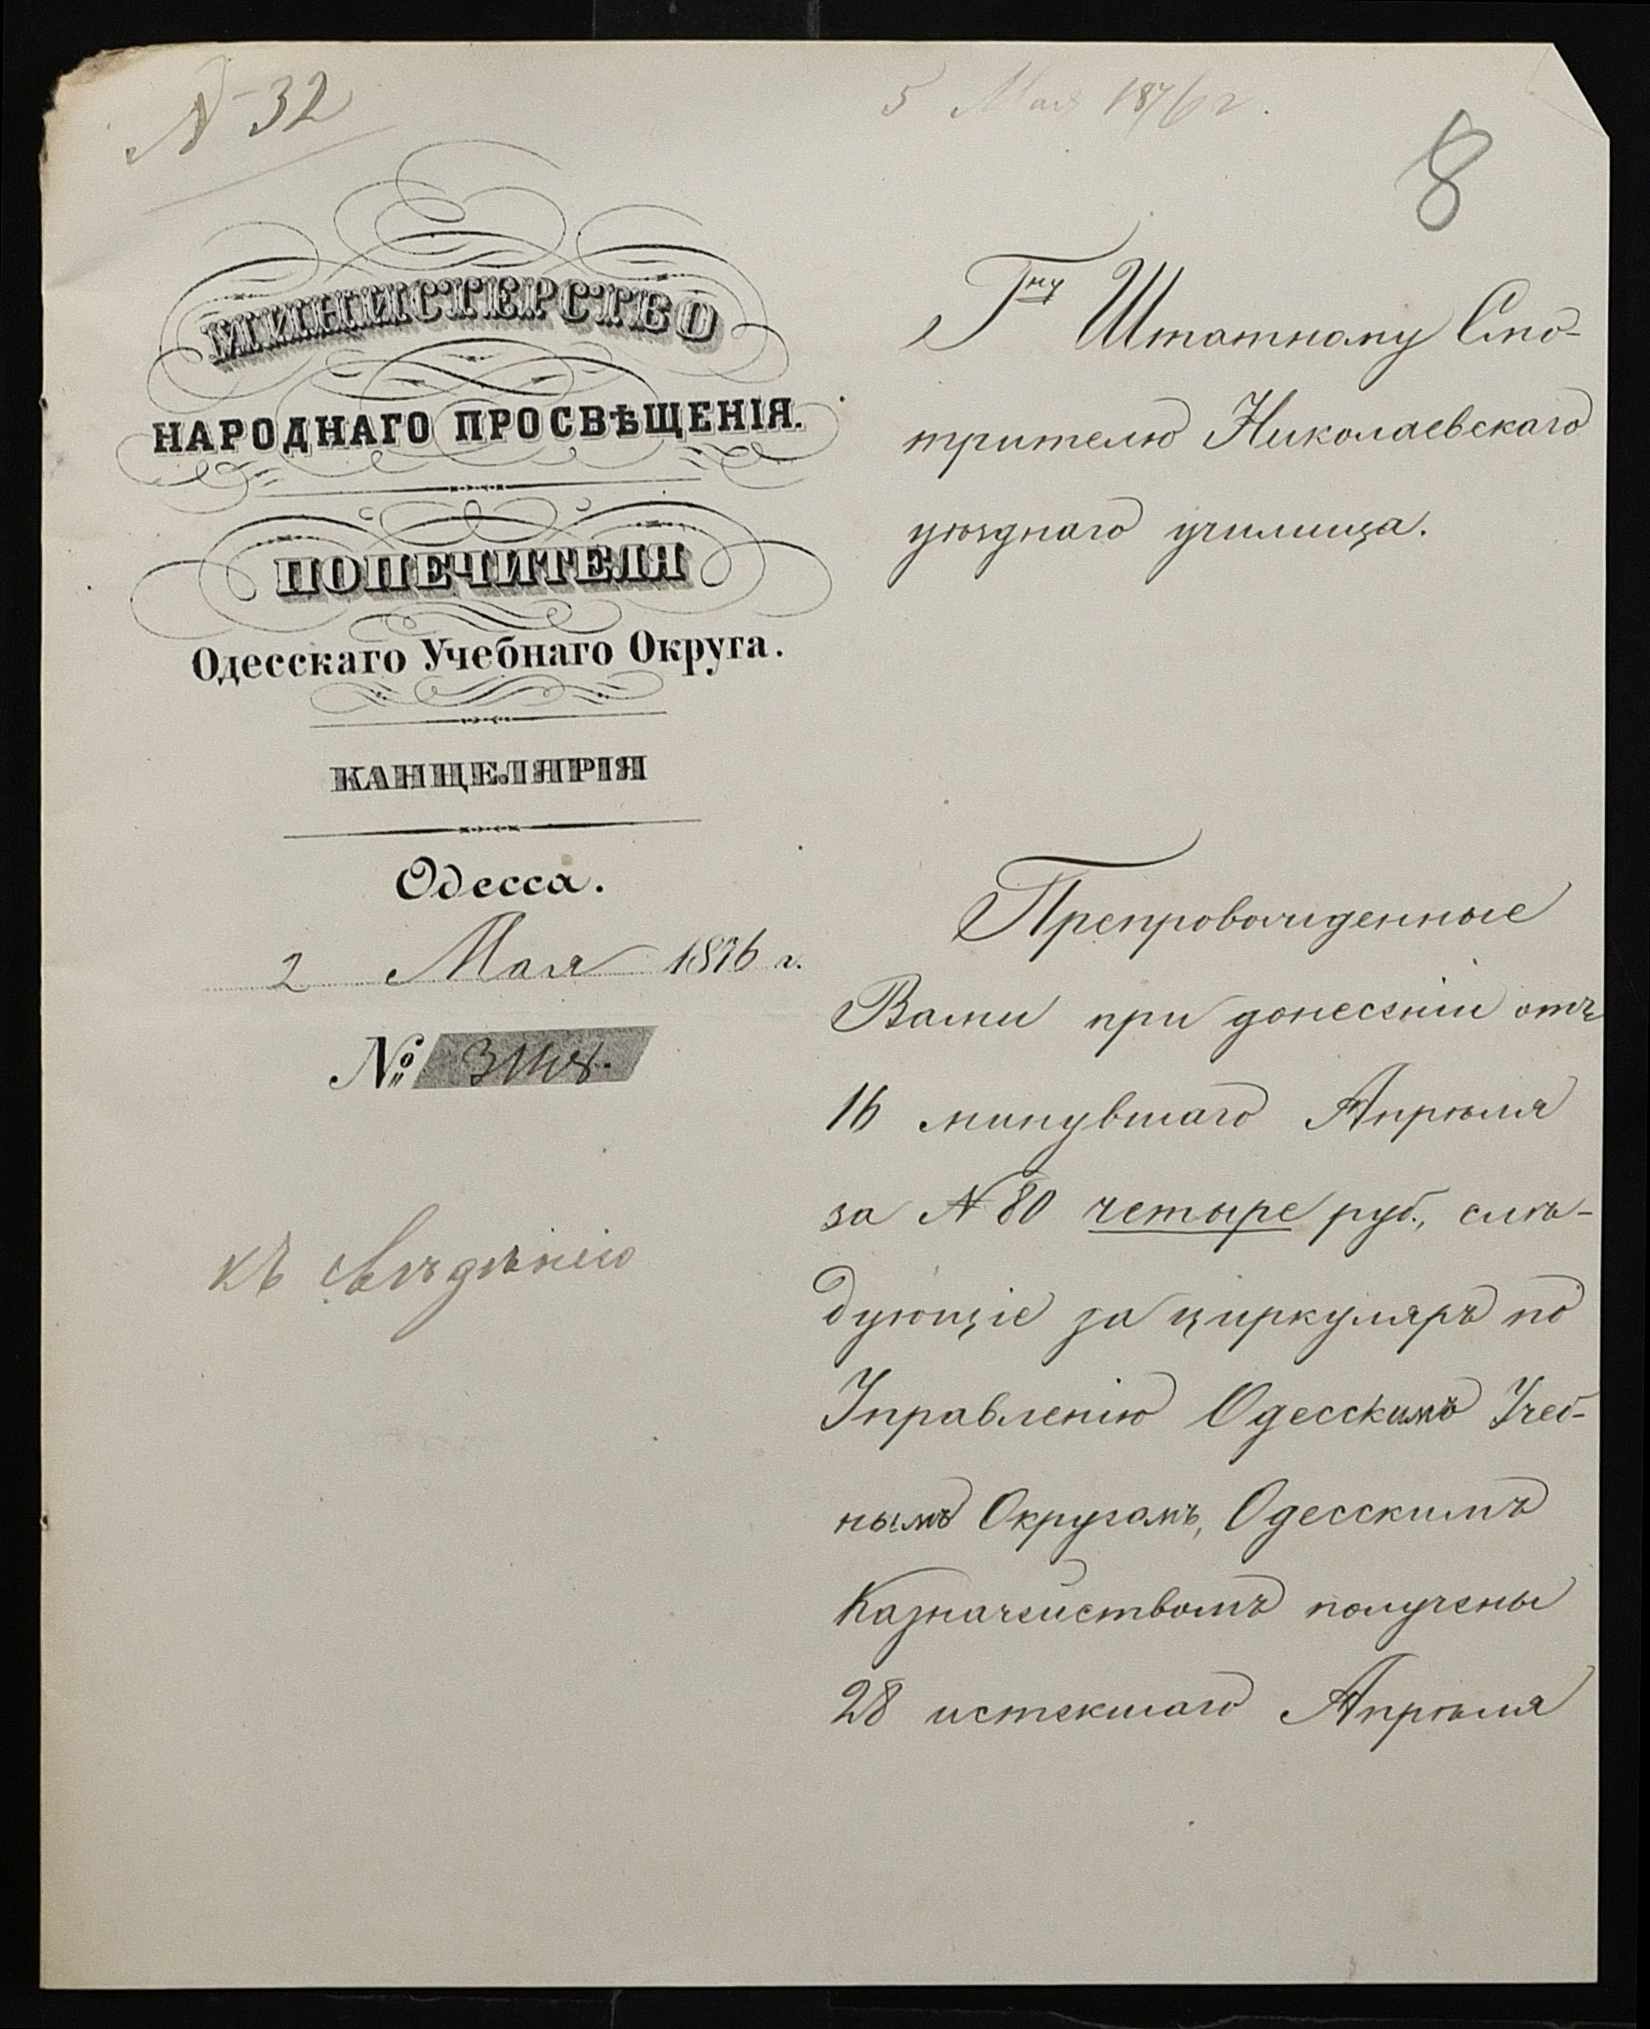 N 32
5 Мая 1876 г.
8
МИНИСТЕРСТВО
НАРОДНАГО ПРОСВѢЩЕНІЯ.
ПОПЕЧИТЕЛЯ
Одесскаго Учебнаго Округа.
КАНЦЕЛЯРІЯ
Одесса.
2 Мая 1876 г.
№
къ свѣдѣнію
Гну Штатному Смо-
трителю Николаевскаго
уѣзднаго училища.
Препровожденные
Вами при донесеніи отъ
16 минувшаго Апрѣля
за N 80 четыре руб., слѣ-
дующіе за циркуляръ по
Управленію Одесскимъ Учеб-
нымъ Округомъ, Одесскимъ
Казначействомъ получены
28 истекшаго Апрѣля